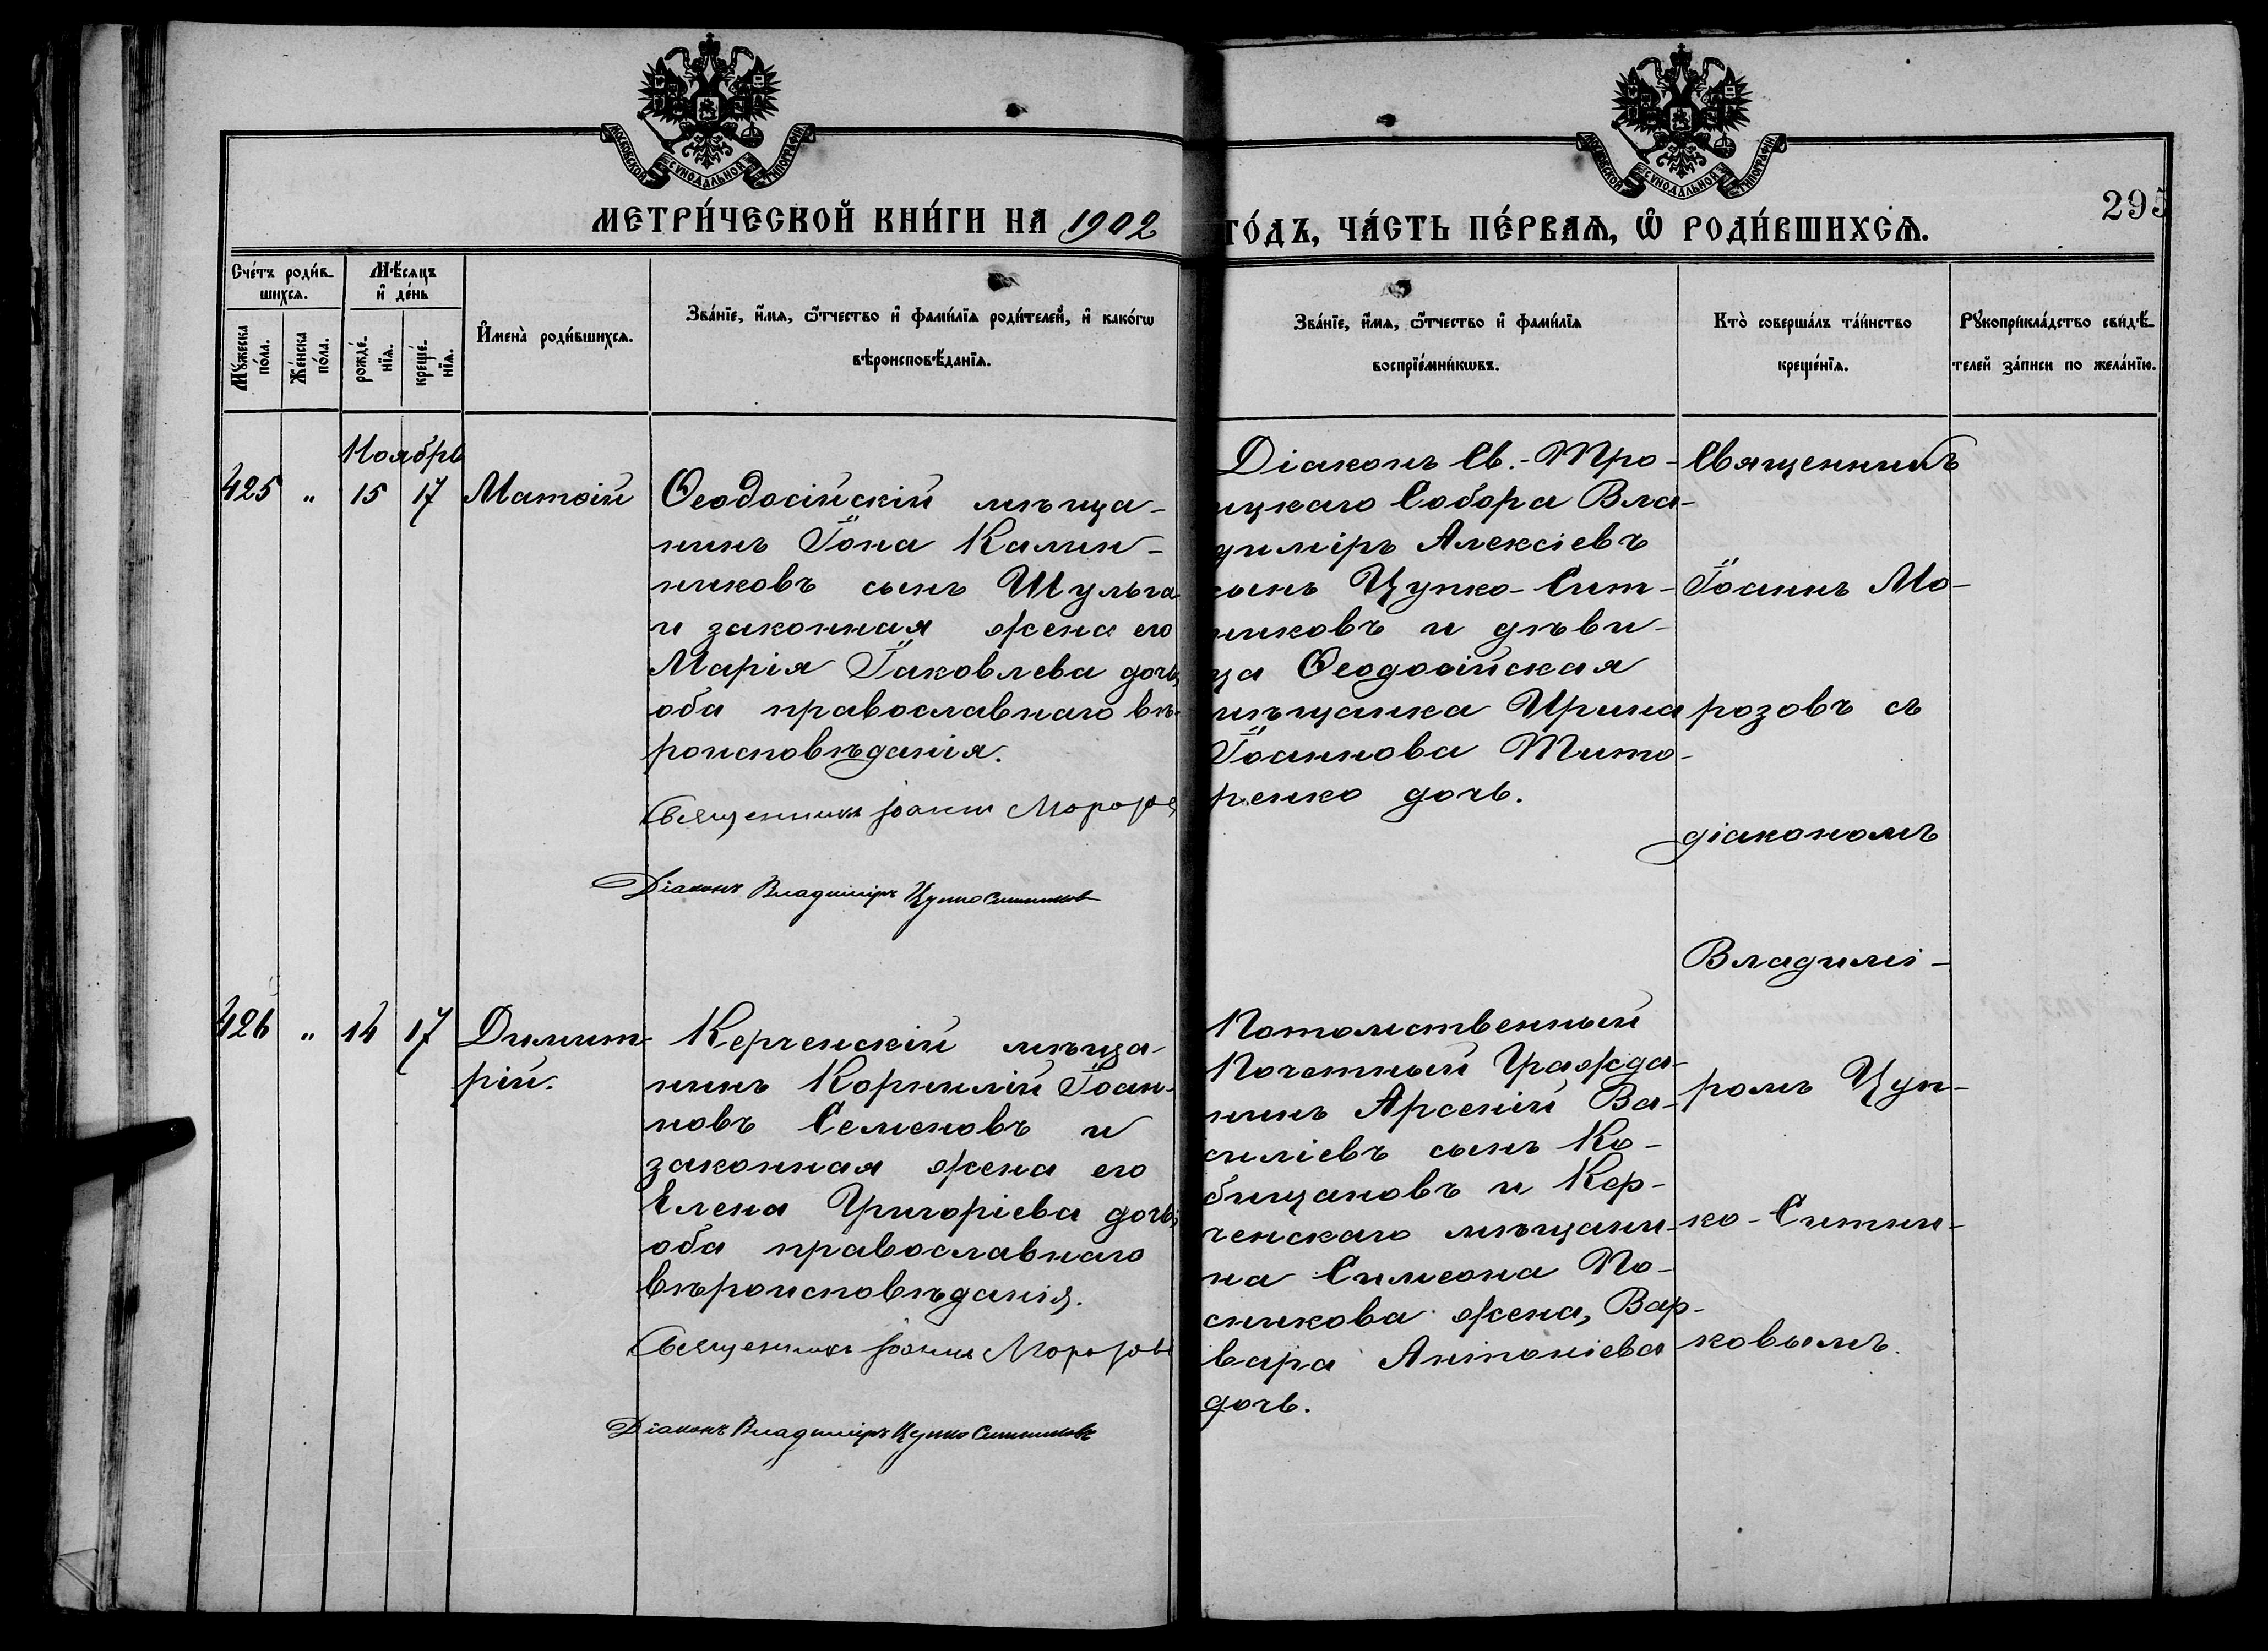 МОСКОВСКОЙ СѴНОДАЛЬНОЙ ТИПОГРАФІИ
МОСКОВСКОЙ СѴНОДАЛЬНОЙ ТИПОГРАФІИ
295
МЕТРИ́ЧЕСКОЙ КНИ́ГИ НА 1902
ГО́ДЪ, ЧА́СТЬ ПЕ́РВАѦ, Ѡ҆ РОДИ́ВШИХСѦ.
Сче́тъ роди́в-
шихсѧ.
Мѣ́сѧцъ
и҆ де́нь
Мꙋ́жеска
по́ла.
Же́нска
по́ла.
рожде́-
нїѧ.
креще́-
нїѧ.
И҆мена̀ роди́вшихсѧ.
Зва́нїе, и҆́мѧ, ѻ҆́тчество и҆ фами́лїѧ роди́телей, и҆ како́гѡ
вѣроисповѣ́данїѧ.
Зва́нїе, и҆́мѧ, ѻ҆́тчество и҆ фами́лїѧ
воспрїе́мникѡвъ.
Кто̀ соверша́лъ та́инство
креще́нїѧ.
Рꙋкоприкла́дство свидѣ́-
телей за́писи по жела́нїю.
Ноябрь
425 " 15 17 Матѳій
Ѳеодосійскій мѣща-
нинъ Іона Калин-
никовъ сынъ Шульга
и законная жена его
Марія Іаковлева дочь,
оба православнаго вѣ-
роисповѣданія.
Священникъ Іоаннъ Морозов
Діаконъ Владиміръ Цупко Ситников
Діаконъ Св.-Тро-
ицкаго Собора Вла-
диміръ Алексіевъ
сынъ Цупко-Сит-
никовъ и дѣви-
ца Ѳеодосійская
мѣщанка Ирина
Іоаннова Тито-
ренко дочь.
Священникъ
Іоаннъ Мо-
розовъ съ
діакономъ
Владимі-
ромъ Цуп-
ко-Ситни-
ковымъ.
426 " 14 17 Димит-
рій.
Керченскій мѣща-
нинъ Корнилій Іоан-
новъ Семеновъ и
законная жена его
Елена Григоріева дочь,
оба православнаго
вѣроисповѣданія.
Священникъ Іоаннъ Морозовъ
Діаконъ Владиміръ Цупко Ситниковъ
Потомственный
Почетный Гражда-
нинъ Арсеній Ва-
силіевъ сынъ Ко-
бищановъ и Кер-
ченскаго мѣщани-
на Симеона По-
сникова жена, Вар-
вара Антоніева
дочь.